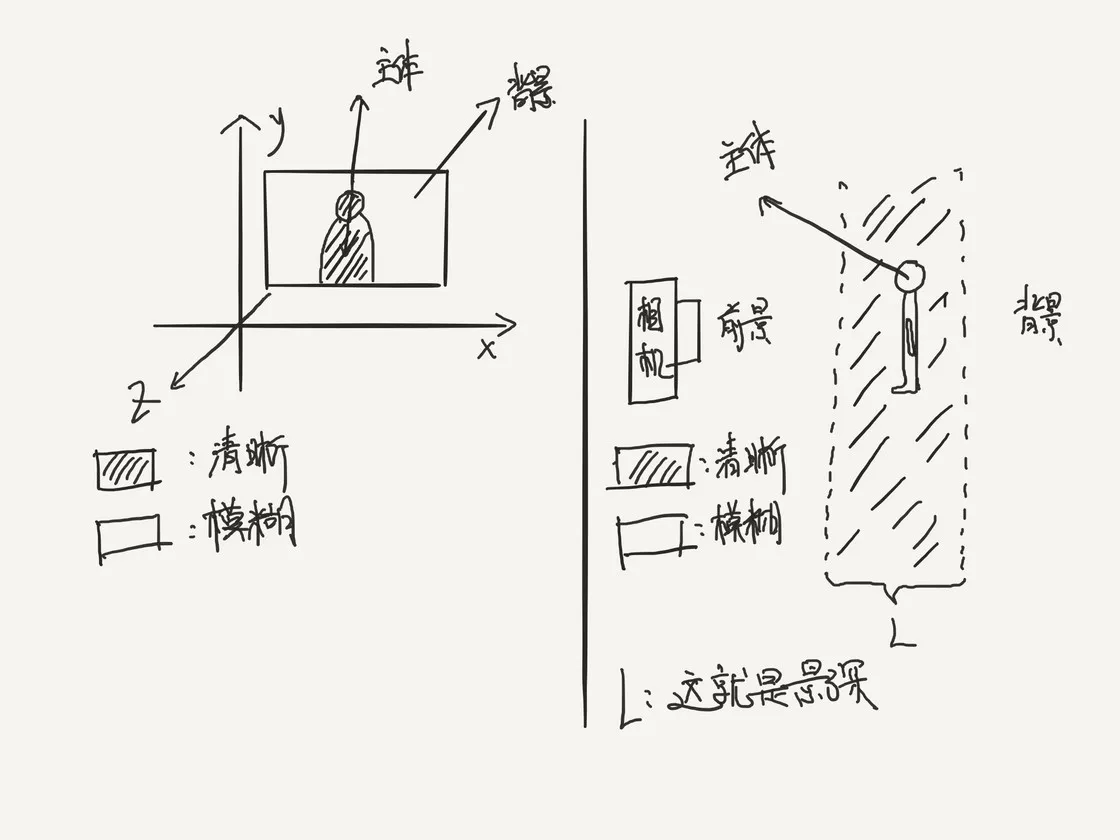 主体
背景
y
x
z
:清晰
:模糊
主体
相机
前景
背景
:清晰
:模糊
L
L:这就是景深